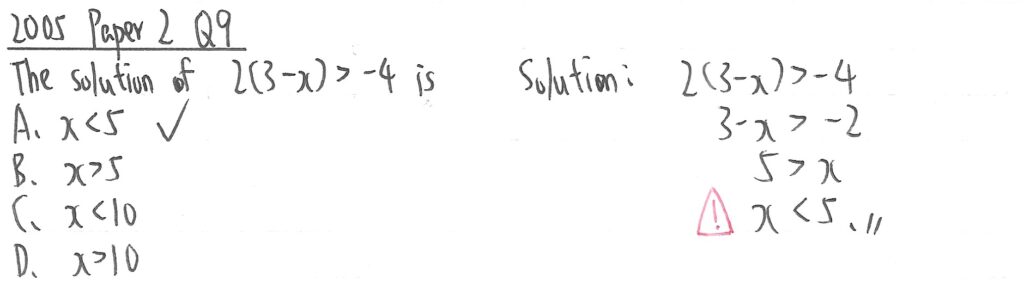 2005 Paper 2 Q9
The solution of 2(3-x) > -4 is
A. x < 5 ✓
B. x > 5
C. x < 10
D. x > 10
Solution: 2(3-x) > -4
3-x > -2
5 > x
! x < 5. //